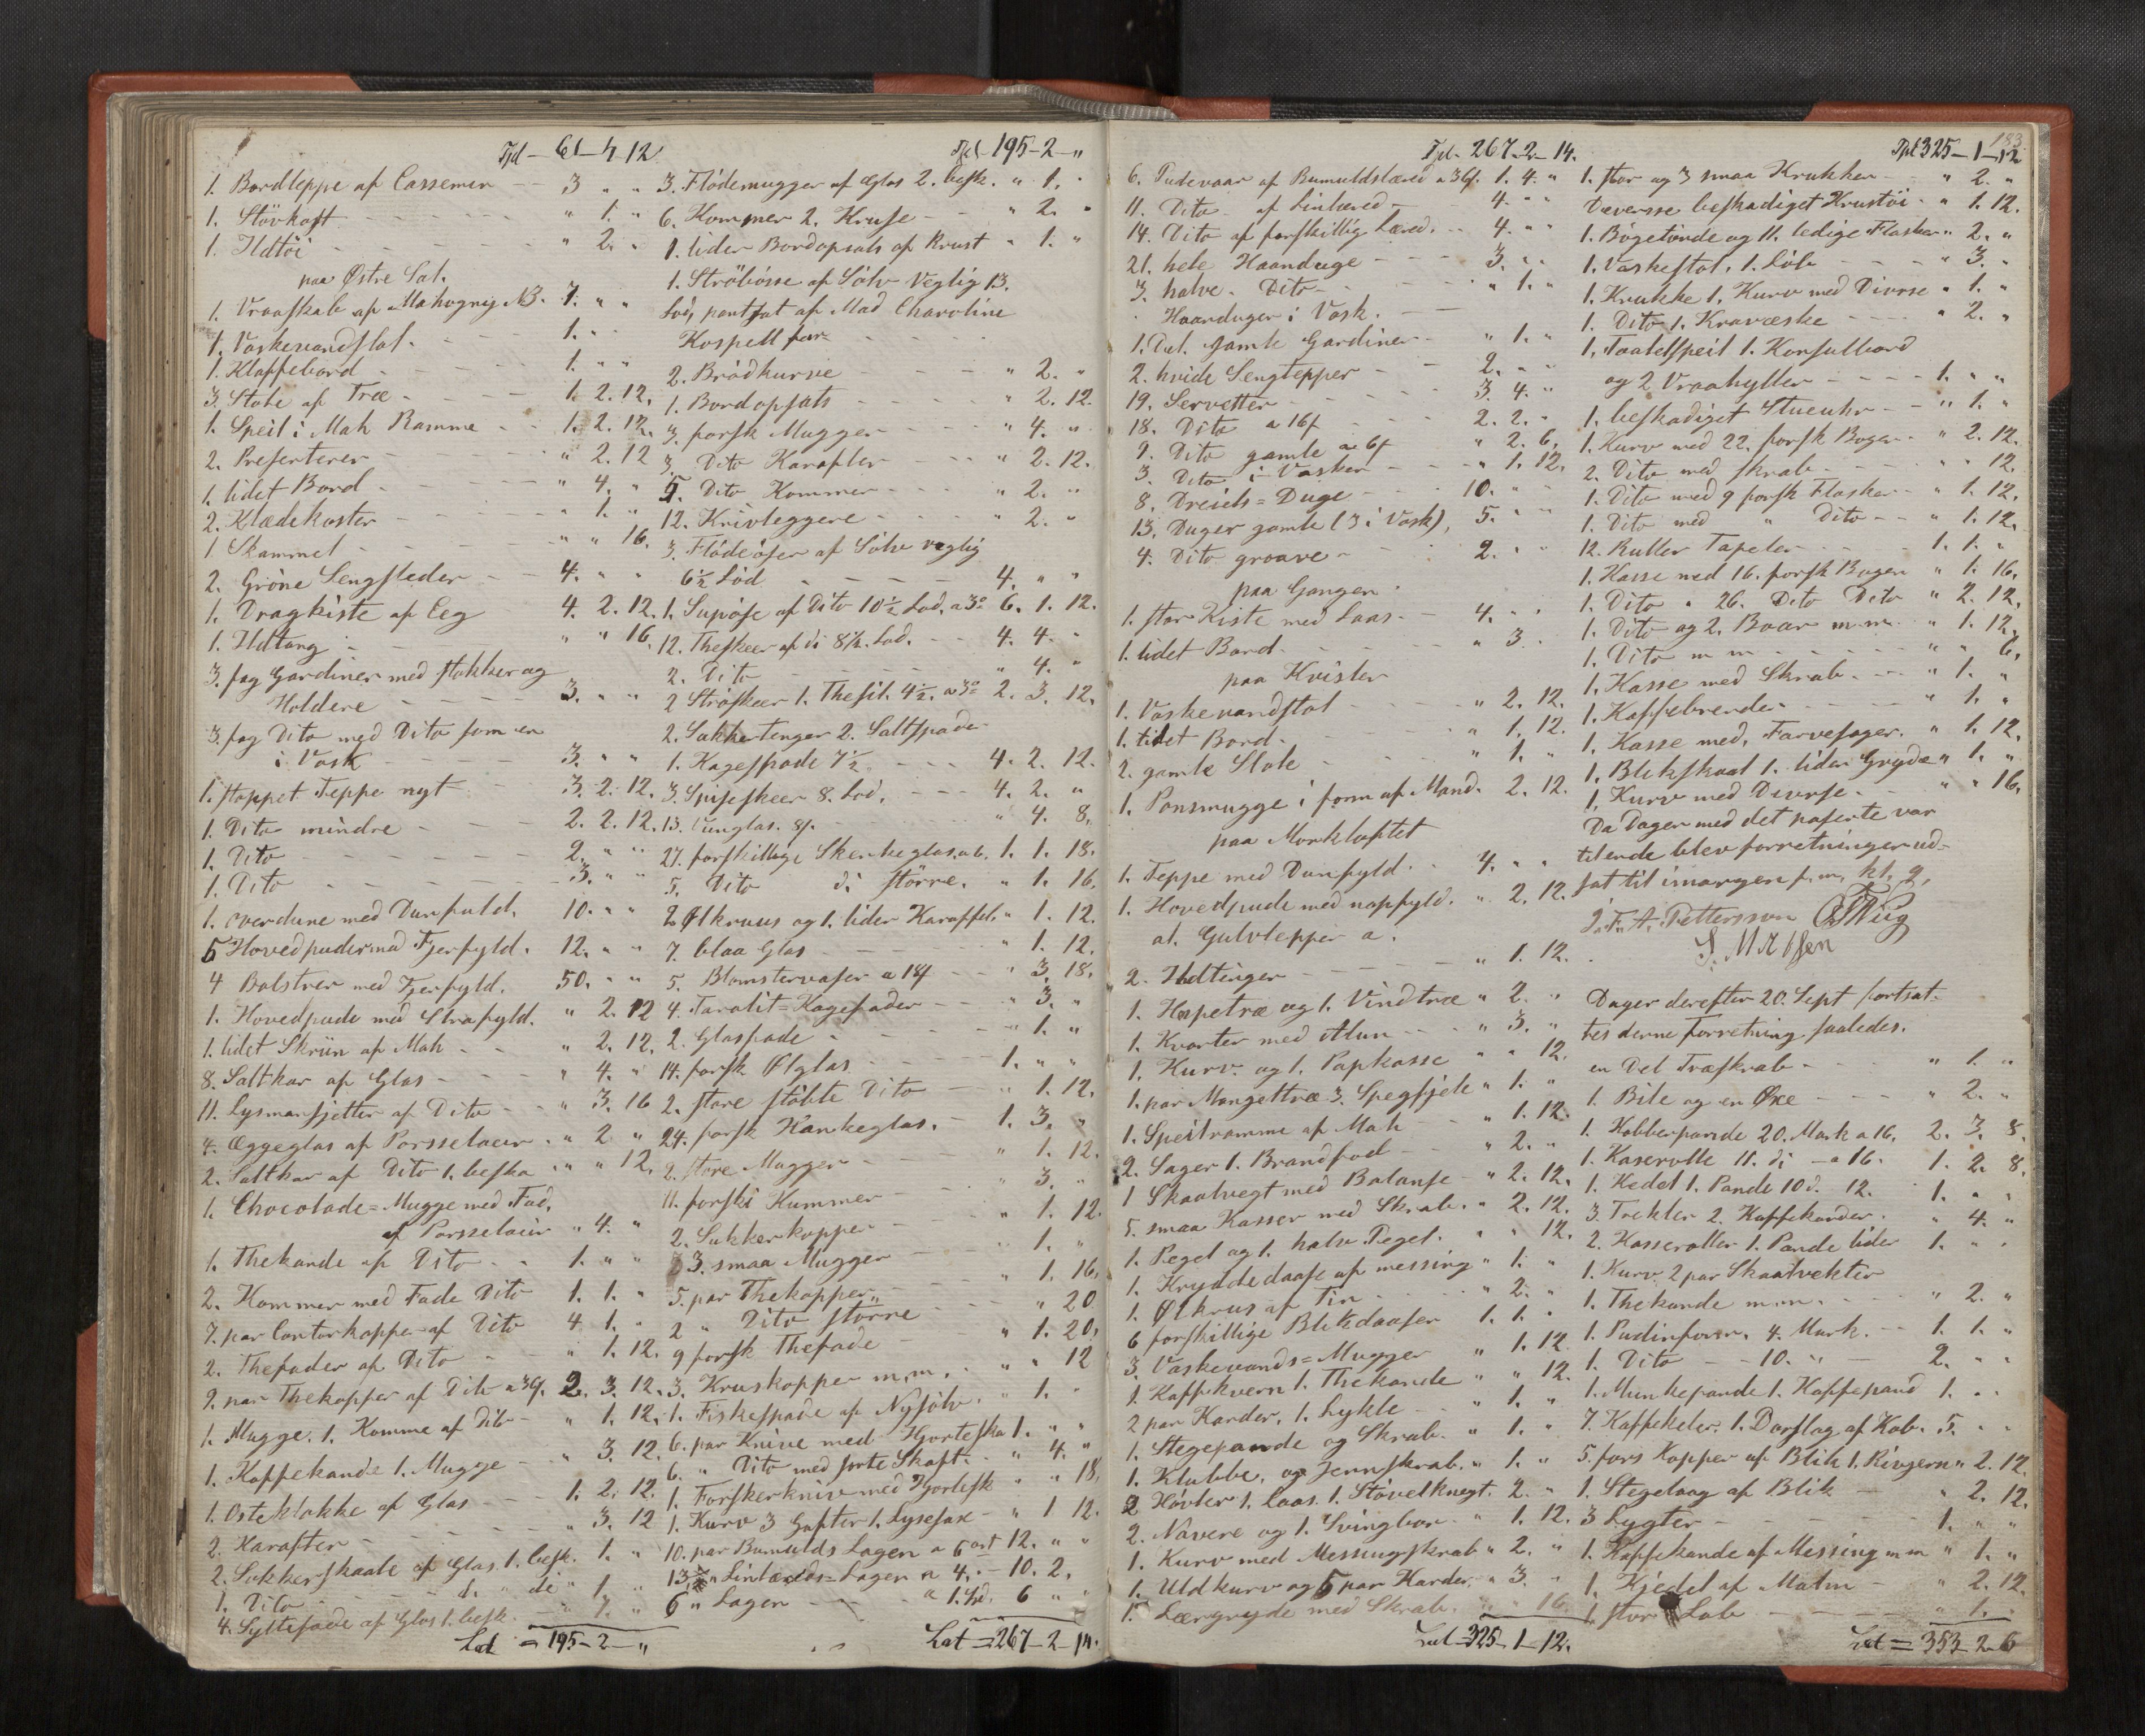 Tpd - 61 - 4 12
1. Bordteppe af Cassemer - - 3 " "
1. Støvkost - - - - " 1. "
1. Ildtöi - - - - " 2. "
paa Østre Sal.
1. Vraaskab af Mahogny N3. 7. " "
1. Vaskevandstol - 1. " "
1. Klappebord - - - 1. " "
3. Stole af Træ - - 1. 2. 12.
1. Speil i Mah Ramme - - 1. 2. 12.
2. Presenterer - - " 2. 12
1. lidet Bord - - - " 4. "
2. Klædekoster - - - " 1. "
1 Skammel - - - " " 16.
2. Gröne Sengsteder - - 4. " "
1. Dragkiste af Eeg 4. 2. 12.
1. Ildtang - - " " 16.
3. fag Gardiner med stokker og
Holdere - - - 3. " "
3. fag Dito med Dito som er
i Vask - - - 3. " "
1. stoppet Teppe nyt - 3. 2. 12.
1. Dito mindre - - 2. 2. 12.
1. Dito - - - - 2. " "
1. Dito - - - - 3. " "
1. overdune med Dunfuld. 10. " "
5 Hovedpuder med Fjerfyld. 12. " "
4 Bolstrer med Fjerfyld. 50. " "
1. Hovedpude med Strafyld. " 2. 12
1. lidet Skriin af Mah - - " 2. 12.
8. Saltkar af Glas - - - " 4. "
11. Lysmansjetter af Dito - - " 3. 16
4. Æggeglas af Porsselaeir " 2 "
2. Saltkar af Dito 1. beska " " 12.
1. Chocolade = Mugge med Fad,
af Porsselaeir " 4. "
1. Thekande af Dito - - 1. " "
2. Kommer med Fade Dito 1. 1. "
7. par Contorkopper af Dito 4. 1. "
2. Thefader af Dito - - " 1. 12.
9. par Thekopper af Dito a 36f. 2. 3. 12.
1. Mugge. 1. Komme af Dito - " 1. 12.
1. Kaffekande 1. Mugge - " 3. 12.
1. Osteklokke af Glas - - 1. 2. 12.
2. Karafter - - - " 3. 12
2. Sukkerskaale af Glas. 1. besk. 1. "
1. Dito - - - di " di " 1. "
4. Syltefade af Glas 1. besk. - " 7. "
Lat = 195 - 2 - "
Tpd - 195 - 2 - "
3. Flödemugger af Glas 2. besk. " 1. "
6. Kommer 2. Kruse - - " 2. "
1. liden Bordopsats af Krust " 1. "
1. Ströbösse af Sölv Vegtig 13.
Lod, pantsat af Mad Charoline
Kospell for - - -
2. Brödkurve - - - " 2. "
1. Bordopsats - - - " 2. 12.
3. forsk Mugger - - - " 4. "
3. Dito Karafler - - " 2. 12.
5. Dito Kommer - - - " 2. "
12. Knivleggere - - - " 2. "
3. Flödeöser af Sölv vegtig
6 1/2 Löd - - - - 4. " "
1. Supöse af Dito 10 1/2 Lod, a 3 6. 1. 12.
12. Theskeer af di 8 1/2. Lod. - - 4. 4. "
2. Dito - - - - " 4. "
2 Ströskeer 1. Thesil. 4 1/2. a 3 2. 3. 12.
2. Sukkertenger 2. Saltspade
1. Kagespade 7 1/2. - - - 4. 2. 12.
3. Spiseskeer 8. Lod. - - - 4. 2. "
13. Viinglas. 8f. - - - " 4. 8.
27. forskillige Skenkeglas. a 6. 1. 1. 18.
5. Dito di större. " 1. 16.
2 Ølkruus og 1. liden Karaffel. " 1. 12.
7. blaa Glas - - - " 1. 12.
5. Blomstervaser a 18f - - " 3. 18.
4. Taralit = Kagefader - - " 3. "
2. Glasfade - - - " 1. "
14. forsk Ølglas - - - 1. " "
2. store stöbte Dito - - " 1. 12.
24. forsk Hankeglas. - 1. 3. "
2. store Mugger - - - " 1. 12.
11. forski Kummer - - " 3. "
2. Sukkerkopper - - " 1. 12.
3. smaa Mugger - - " 1. "
5. par Thekopper " - - " 1. 16.
2 " Dito större - - " " 20
9 forsk Thefade - - " 1. 20.
3. Kruskopper m.m. - " " 12
1. Fiskespade af Nysölv. " 1. "
6. par Knive med Hjorteska 1. " "
6. " Dito med sorte Skaft. " 4. "
1. Forskerkniv med Hjortesk " " 18.
1. Kurv 3 Gafter 1. Lysesax - " 1 12.
10. par Bumulds Lagen a 6 ort 12. " "
13 " Linlæreds = Lagen a 4. - 10. 2.
6 " Lagen - - - a 1. Spd. 6 " "
Lat = 267 - 2 - 14.
183.
Tpd - 267 - 2 - 14.
6. Pudevaar af Bumuldslæred a 36f. 1. 4. "
11. Dito af Linlæred - 4. " "
14. Dito af forskillig Læred. - 4. " "
21. hele Haanduge - - - 3. " "
3. halve. Dito - - - " 1. "
Haanduger i Vask. - -
1. Del. gamle Gardiner - " 1. "
2. hvide Sengtepper - - 2. " "
19. Servetter - - - 3. 4. "
18. Dito a 16f - - 2. 2. "
9. Dito gamle a 6f " 2. 6.
3. Dito i Vasken - - " 1. 12.
8. Dreiels = Duge - - 10. " "
13. Duger gamle (3 i Vask), 5. " "
4. Dito groave - - 2. " "
paa Gangen
1. stor Kiste med Laas. - 4. " "
1. lidet Bord. - - - " 3. "
paa Kvisten
1. Vaskevandstol - - - " 2. 12.
1. lidet Bord. - - - " 1. 12.
2. gamle Stole - - - " 1. "
1. Ponsmugge i form af Mand. 2. 12.
paa Morkloftet
1. Teppe med Dunfyld. - 4. " "
1. Hovedpude med nopfyld. " 2. 12.
al. Gulvtepper a.
2. Ildtinger - - - " 1. 12.
1. Hapetræ og 1. Vindtræ " 2. "
1. Kvarter med Alun - - " 3. "
1. Kurv. og 1. Papkasse " " 12.
1. par Mangeltræ 3. Spegfjele " 1. "
1. Speilramme af Mah - " 1. 12.
2. Sager 1. Brandfod - - " 2. "
1 Skaalvegt med Balanse " 2. 12.
5. smaa Kasser med Skrab. " 2. 12.
1. Pegel og 1. halv Pegel. " " 12.
1. Kryddedaase af messing " 1. "
1. Ølkrus af Tin - - - " 2. "
6 forskillige Blikdaaser 1. 1. "
3. Vaskevands = Mugger " 1. 12.
1. Kaffekvern 1. Thekande " " 12.
2 par Karder. 1. Lykte - " 1. "
1. Stegepande og Skrab. " 1. "
1. Klubbe. og Jernskrab. " 1. "
2 Hövler 1. Laas. 1. Stövelknegt. 2. "
2. Navere og 1. Svingbor. " 1. 12.
1. Kurv med Messingskrab " 2. "
1. Uldkurv og 5 par Karder. " 3. "
1. Lærgryde med Skrab. " " 16.
Lat = 325 - 1 - 12.
Tpd 325 - 1 - 12
1. stor og 3 smaa Krukker - " 2. "
Deversse beskadiget Krustöi - " 1. 12.
1. Bögetönde og 11. ledige Flasker " 2. "
1. Vaskestol, 1. Löb - - - " 3. "
1. Krukke 1. Kurv med Divrse " 1. "
1. Dito 1. Kravæske - - - " 2. "
1. Toaletspeil 1. Konsulbord
og 2 Vraahyller - - - 1. " "
1. beskadiget Stueuhr - - " 1. "
1. Kurv med 22. forsk Boger - " 2. 12.
2. Dito med skrab - - - " " 12.
1. Dito med 9 forsk Flasker - " 1. 12.
1. Dito med " Dito - - " 1. 12.
12. Ruller Tapeter - - 1. 1. "
1. Kasse med 16. forsk Bøger " 1. 16.
1. Dito " 26. Dito Dito " 2. 12.
1. Dito og 2. Boar m.m. " 1. 12.
1. Dito m m - - - " " 6.
1. Kasse med Skrab. - - " 1. "
1. Kaffebrender - - - " 1. "
1. Kasse med. Farvesager. " 1. 12.
1. Blekskaal 1. liden Gryde " 1. "
1. Kurv med Deverse - - " " 16.
Da Dagen med det paserte var
tilende blev forretningen ud-
sat til imorgen f.m. kl. 9.
J. F. A. Pettersson
Dagen derefter 20. Sept fortsat-
tes denne Forretning saaledes.
en Del Træskrab - - - " 1. "
1. Bile og en Øxe - - - " 2. "
1. Kobberpande 20. Mark a 16. 2. 3. 8.
1. Kaserolle 11. di - a 16. 1. 2. 8.
1. Kedel 1. Pande 10 d. 12. 1. " "
3. Trekter 2. Kaffekander. " 4. "
2. Kasseroller 1. Pande liden 1. " "
1. Kurv 2 par Skaalvekter
1. Thekande m.m. - - " 2. "
1. Pudinform. 4. Mark. - - 1. 1. "
1. Dito - - 10. " - 2. " "
1. Munkepande 1. Kaffepand 1. " "
7. Kaffekeler. 1. Dorslag af Kob. 5. " "
5. fors Kopper af Blik 1. Rivjern " 2. 12.
1. Stegelaag af Blik - - " 2. 12.
3 Lygter - - - - 1. " "
1. Kaffekande af Messing m m " 1. "
1. Kjedel af Malm - - " 2. 12.
1 stor Löb - - - " 1. "
Lat = 353 - 2 - 6